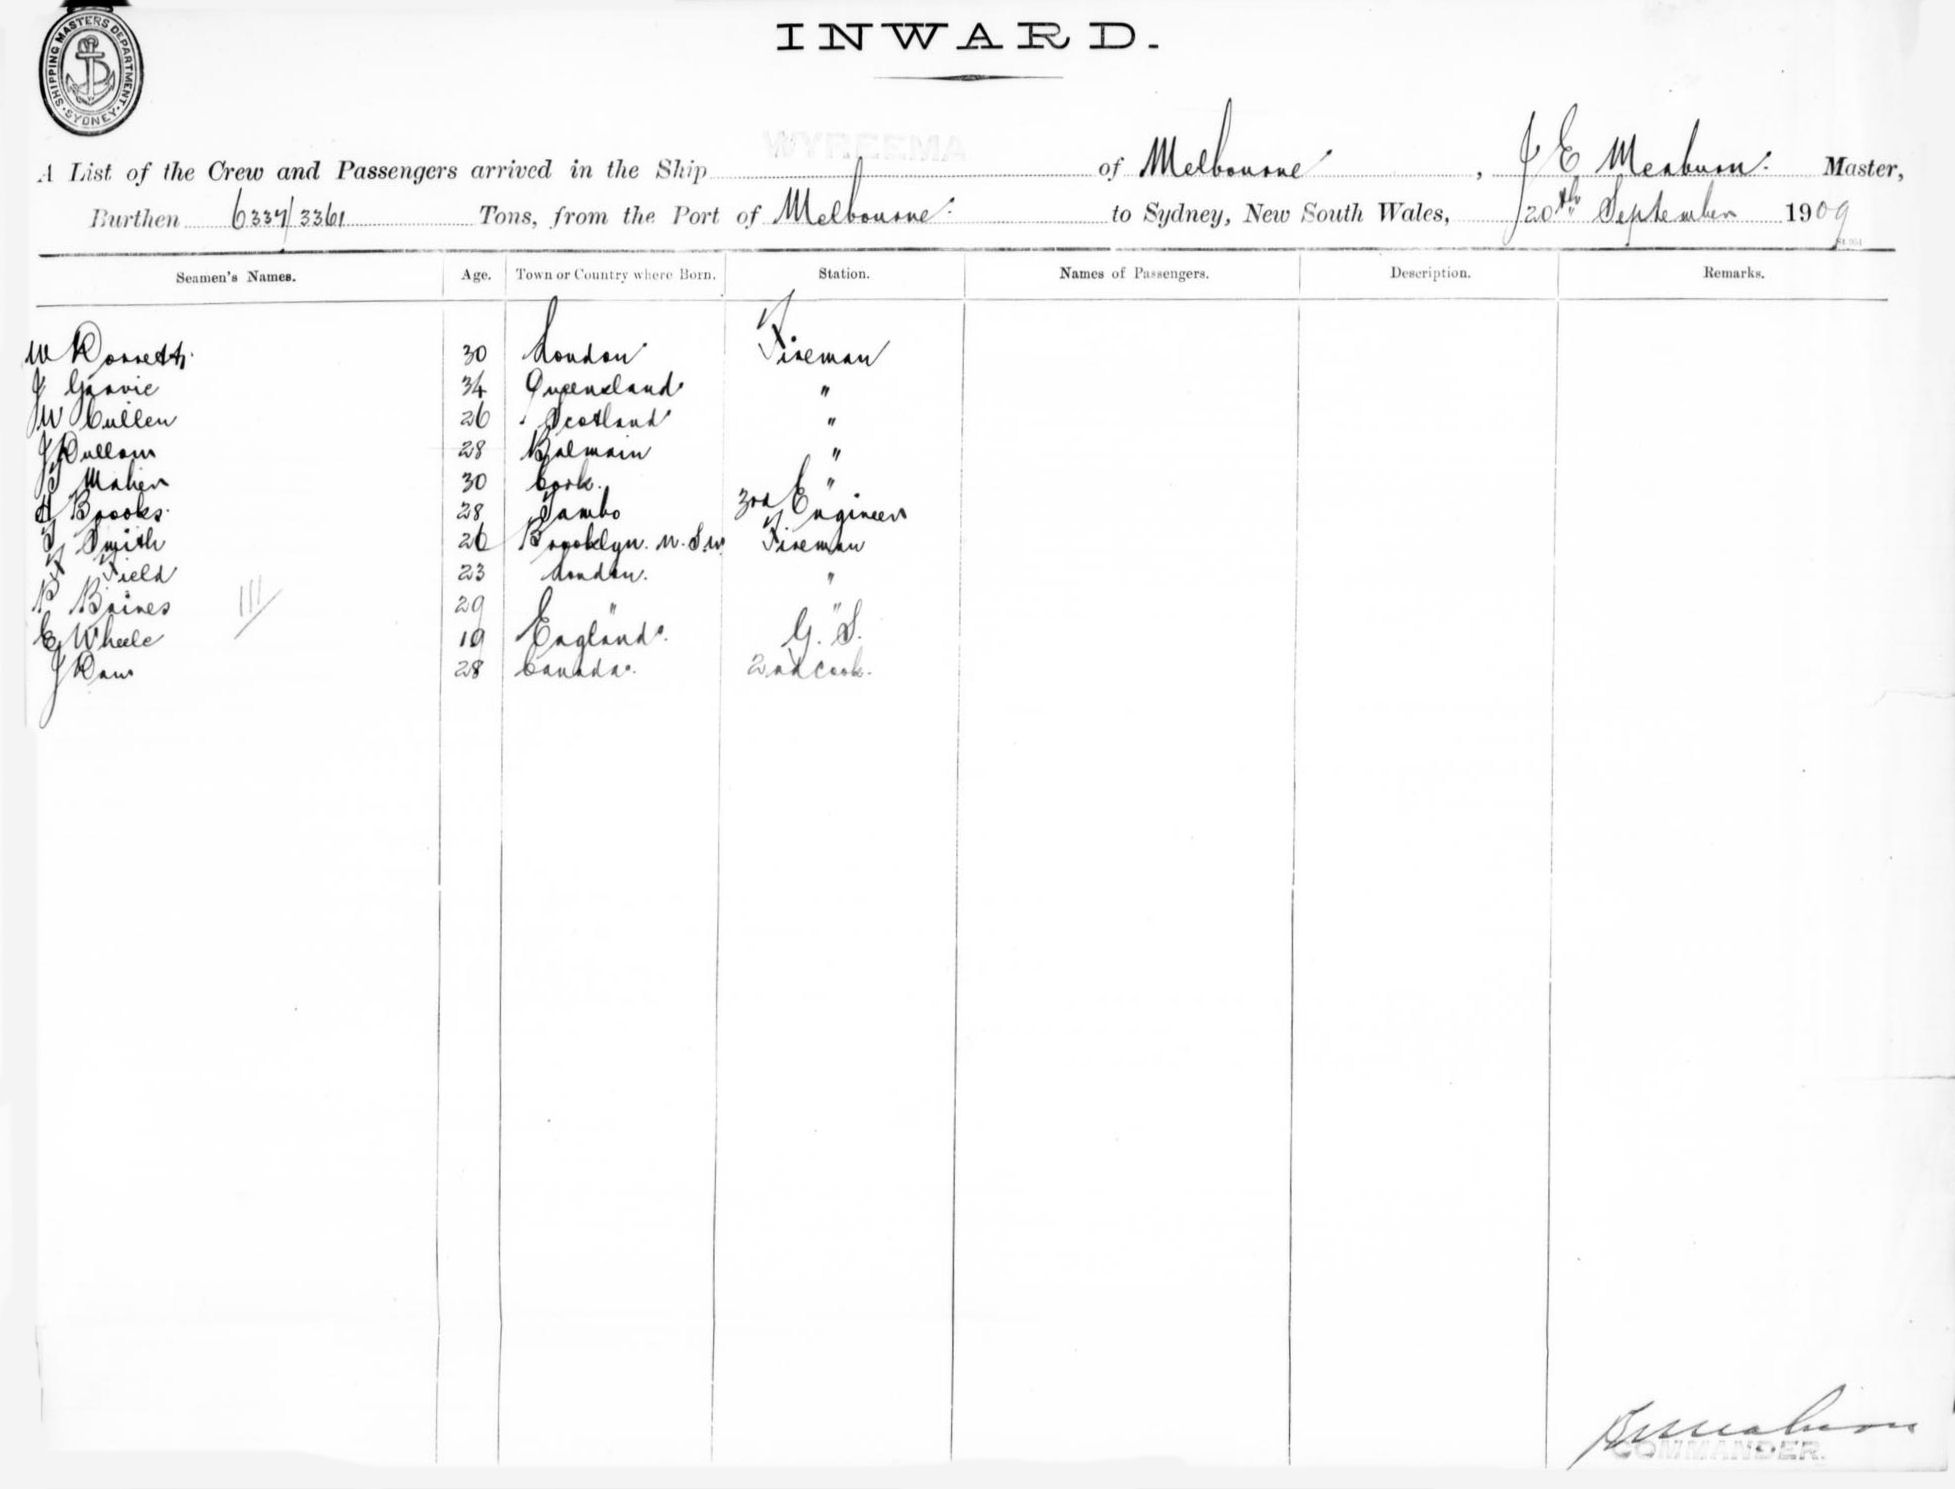 SHIPPING MASTERS DEPARTMENT · SYDNEY ·
INWARD.
WYREEMA
A List of the Crew and Passengers arrived in the Ship of Melbourne, J E Meaburn. Master,
Burthen 6337/3361 Tons, from the Port of Melbourne. to Sydney, New South Wales, 20th September 1909
Seamen's Names. Age. Town or Country where Born. Station. Names of Passengers. Description. Remarks.
W Dorsett 30 London Fireman
J Garvie 34 Queensland "
W Cullen 26 Scotland "
J 28 Balmain "
Maher 30 Cork. "
H Brooks 28 Tambo 3rd Engineer
Smith 26 Brooklyn. N.S.W Fireman
Field 23 London. "
Baines 29 " "
C Wheele 19 England. G. S.
J 28 Canada. 2nd Cook.
COMMANDER.